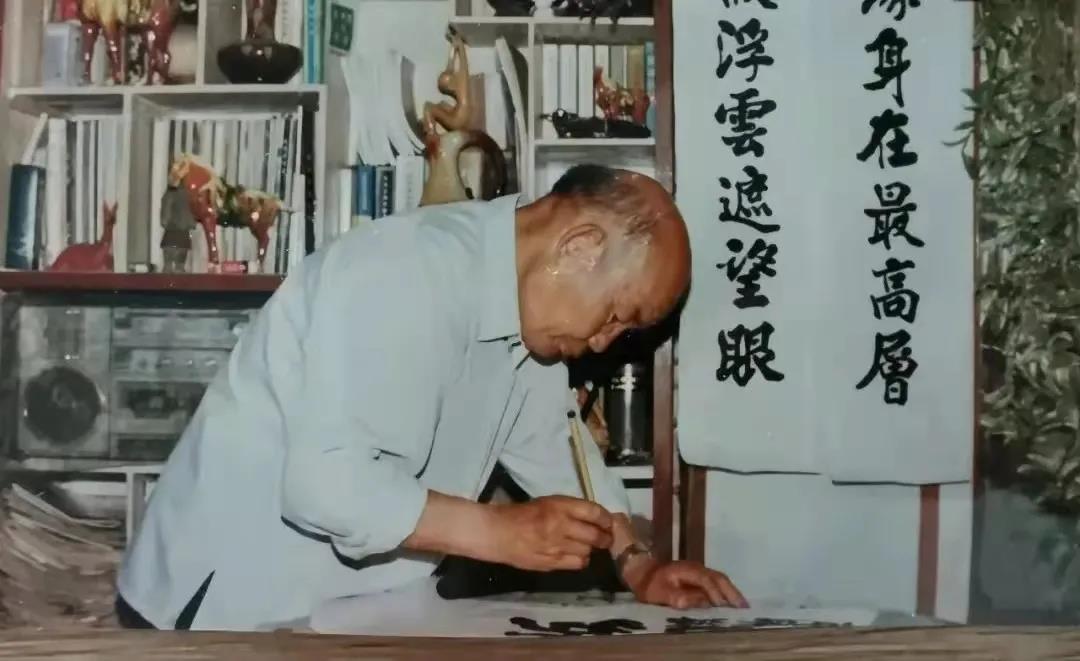 浮雲遮望眼
身在最高層